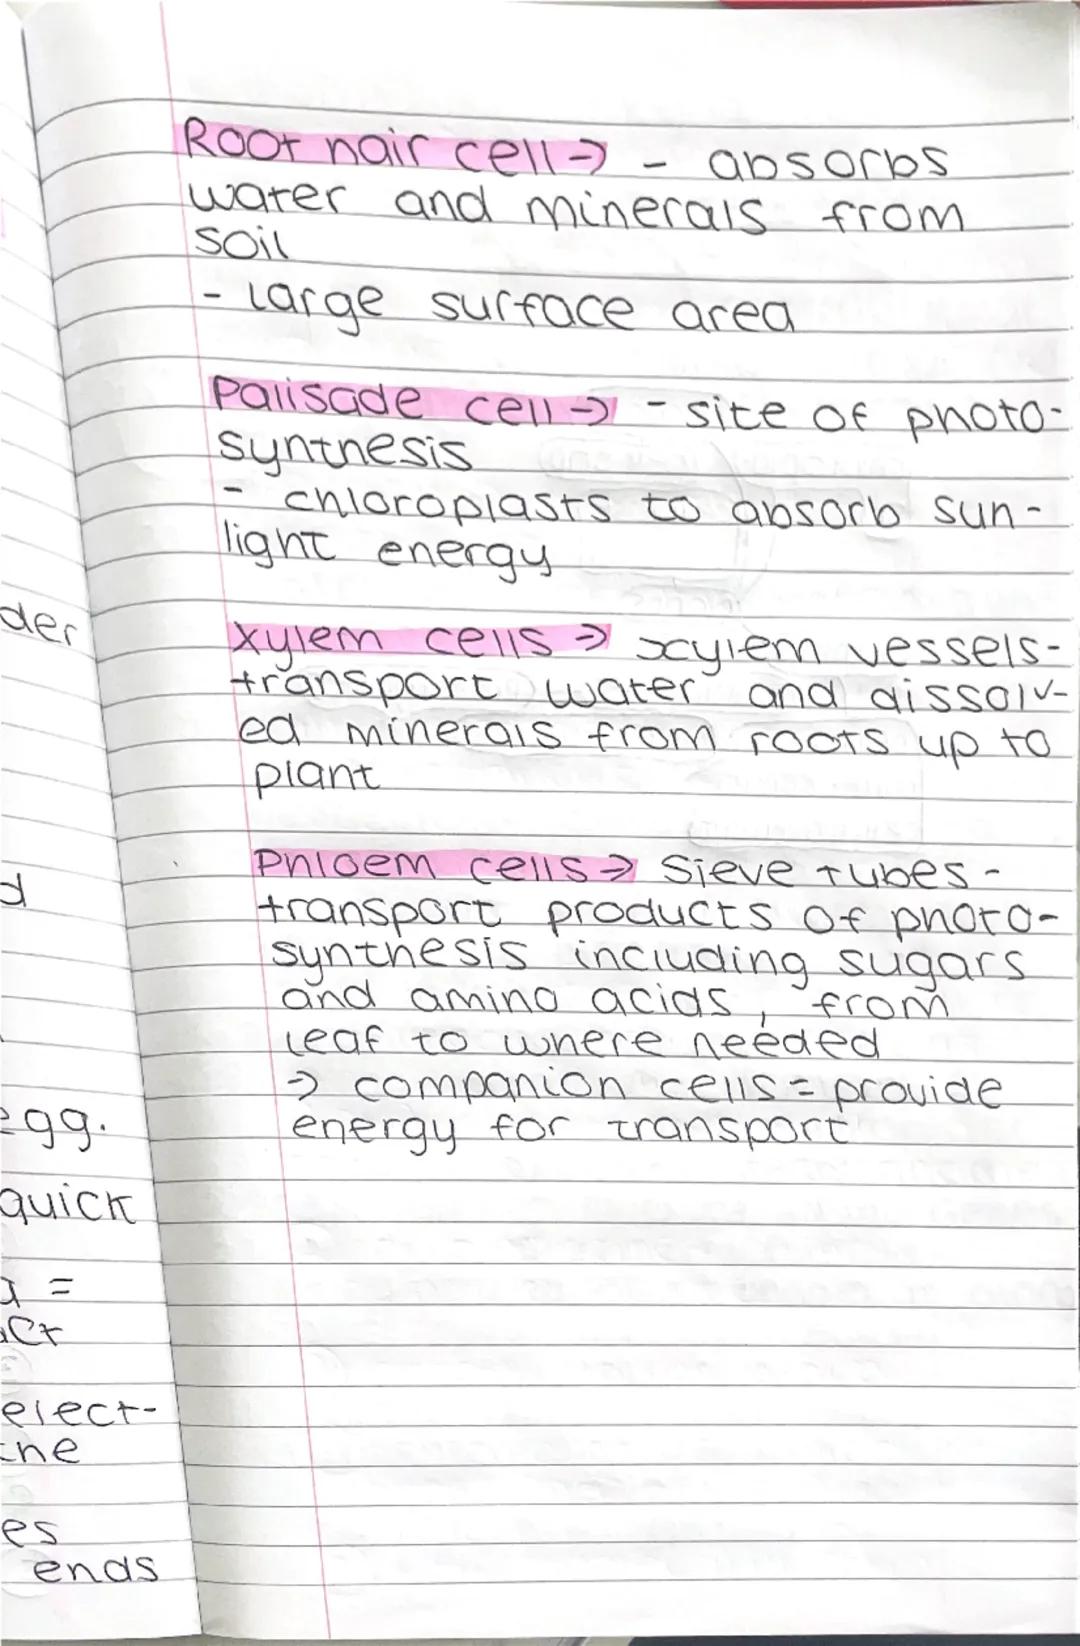 Root hair cell → - absorbs
water and minerals from
soil
- large surface area
Palisade cell → - site of photo-
synthesis
- chloroplasts to absorb sun-
light energy
Xylem cells → xylem vessels-
transport water and dissolv-
ed minerals from roots up to
plant
Phloem cells → sieve tubes -
transport products of photo-
synthesis including sugars
and amino acids, from
leaf to where needed
→ companion cells = provide
energy for transport
der
egg.
quick
=
elect-
the
es
ends